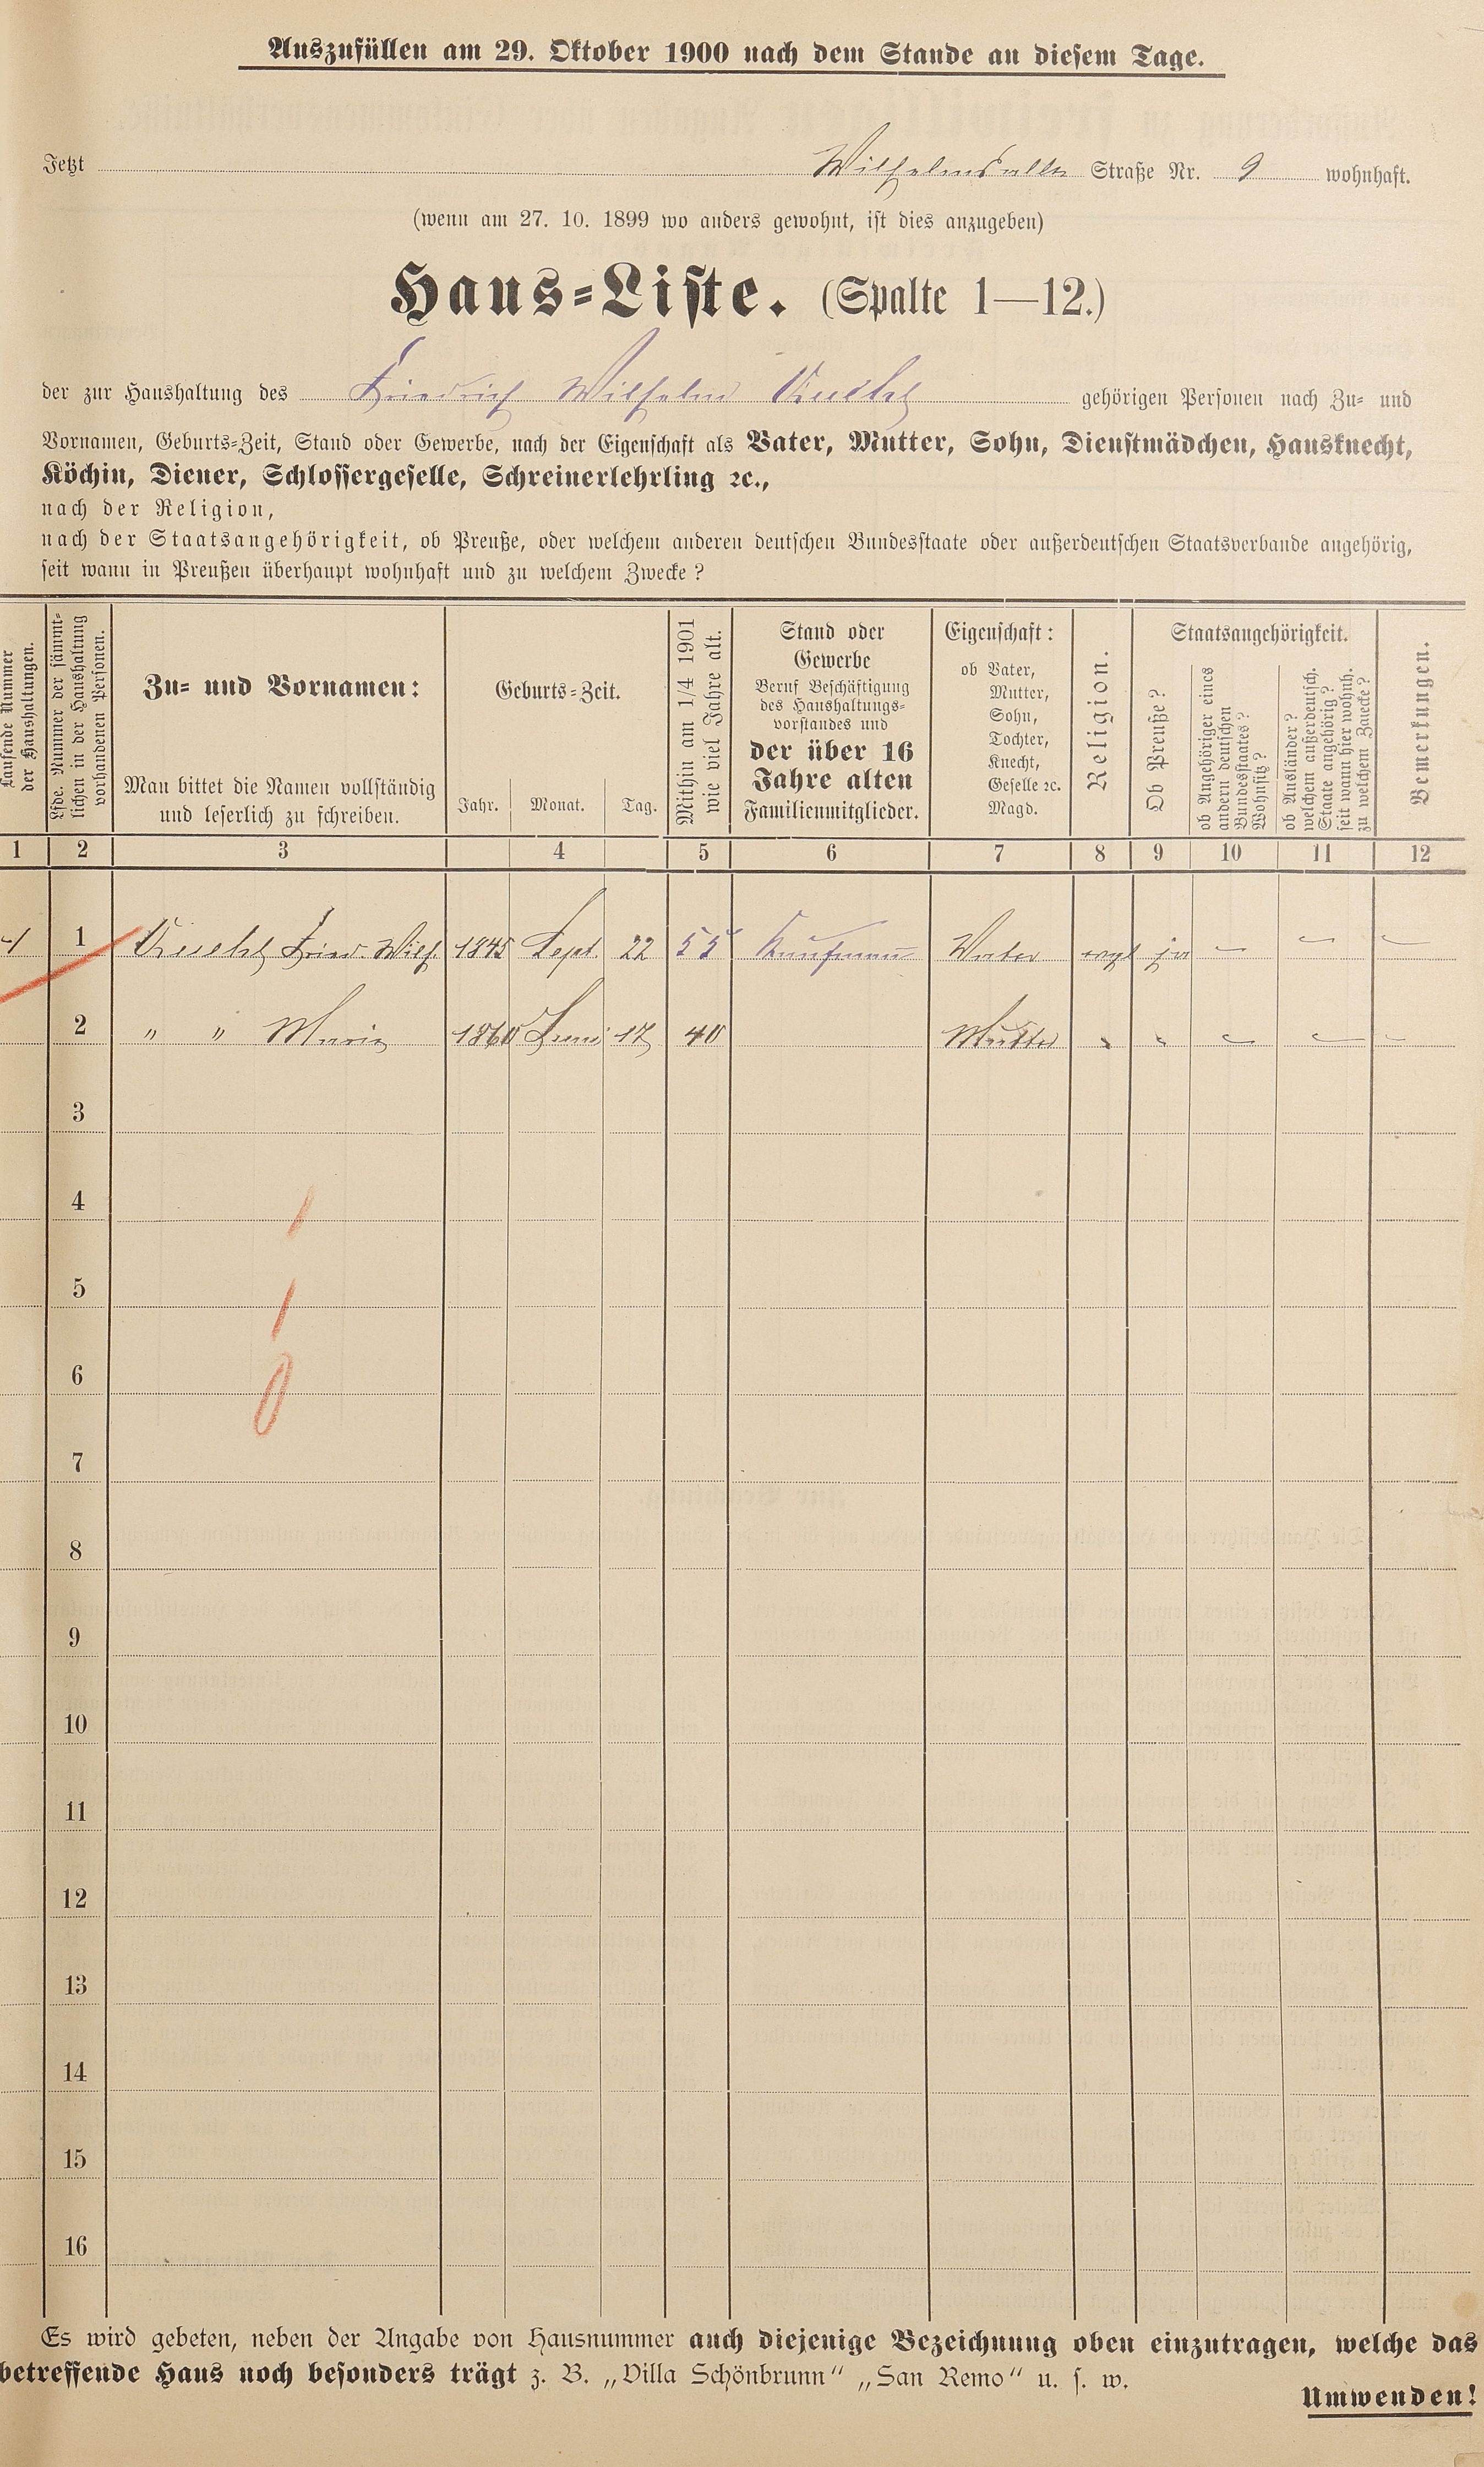 Auszufüllen am 29. Oktober 1900 nach dem Stande an diesem Tage.
Jetzt Wilhelmsallee Straße Nr. 9 wohnhaft.
(wenn am 27. 10. 1899 wo anders gewohnt, ist dies anzugeben)
Haus-Liste. (Spalte 1—12.)
der zur Haushaltung des Friedrich Wilhelm gehörigen Personen nach Zu- und
Vornamen, Geburts-Zeit, Stand oder Gewerbe, nach der Eigenschaft als Vater, Mutter, Sohn, Dienstmädchen, Hausknecht,
Köchin, Diener, Schlossergeselle, Schreinerlehrling ꝛc.,
nach der Religion,
nach der Staatsangehörigkeit, ob Preuße, oder welchem anderen deutschen Bundesstaate oder außerdeutschen Staatsverbande angehörig,
seit wann in Preußen überhaupt wohnhaft und zu welchem Zwecke?
Laufende Nummer
der Haushaltungen.
Lfde. Nummer der sämmt-
lichen in der Haushaltung
vorhandenen Personen.
Zu- und Vornamen:
Man bittet die Namen vollständig
und leserlich zu schreiben.
Geburts-Zeit.
Jahr. Monat. Tag.
Mithin am 1/4 1901
wie viel Jahre alt.
Stand oder
Gewerbe
Beruf Beschäftigung
des Haushaltungs-
vorstandes und
der über 16
Jahre alten
Familienmitglieder.
Eigenschaft:
ob Vater,
Mutter,
Sohn,
Tochter,
Knecht,
Geselle ꝛc.
Magd.
Religion.
Staatsangehörigkeit.
Ob Preuße?
ob Angehöriger eines
andern deutschen
Bundesstaates?
Wohnsitz?
ob Ausländer?
welchem außerdeutsch.
Staate angehörig?
seit wann hier wohnh.
zu welchem Zwecke?
Bemerkungen.
1 2 3 4 5 6 7 8 9 10 11 12
1 Fried. Wilh. 1845 Sept. 22 55 Kaufmann Vater evgl ja — — —
2 " " Maria 1860 Juni 17 40 Mutter " " — — —
3
4
5
6
7
8
9
10
11
12
13
14
15
16
Es wird gebeten, neben der Angabe von Hausnummer auch diejenige Bezeichnung oben einzutragen, welche das
betreffende Haus noch besonders trägt z. B. „Villa Schönbrunn“ „San Remo“ u. s. w.
Umwenden!